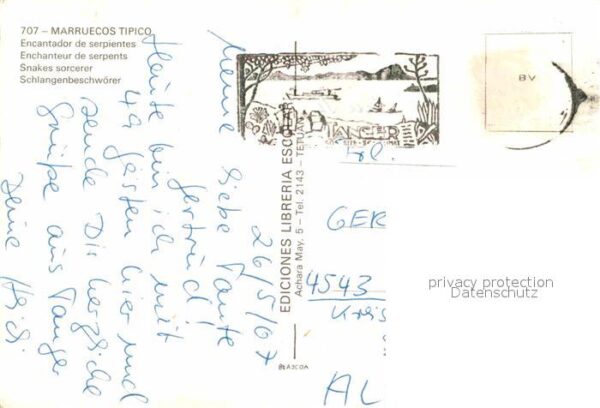 707 – MARRUECOS TIPICO
Encantador de serpientes
Enchanteur de serpents
Snakes sorcerer
Schlangenbeschwörer
26/5/67
Meine liebe Tante
Gertrud!
Heute bin ich mit
49 Gästen hier und
sende Dir herzliche
Grüße aus Tanger
Deine Heidi
EDICIONES LIBRERIA ESCOLAR
Achara May. 5 – Tel. 2143 – TETUAN
TANGER
BV
Frl.
GER
4543
Kreis
AL
privacy protection
Datenschutz